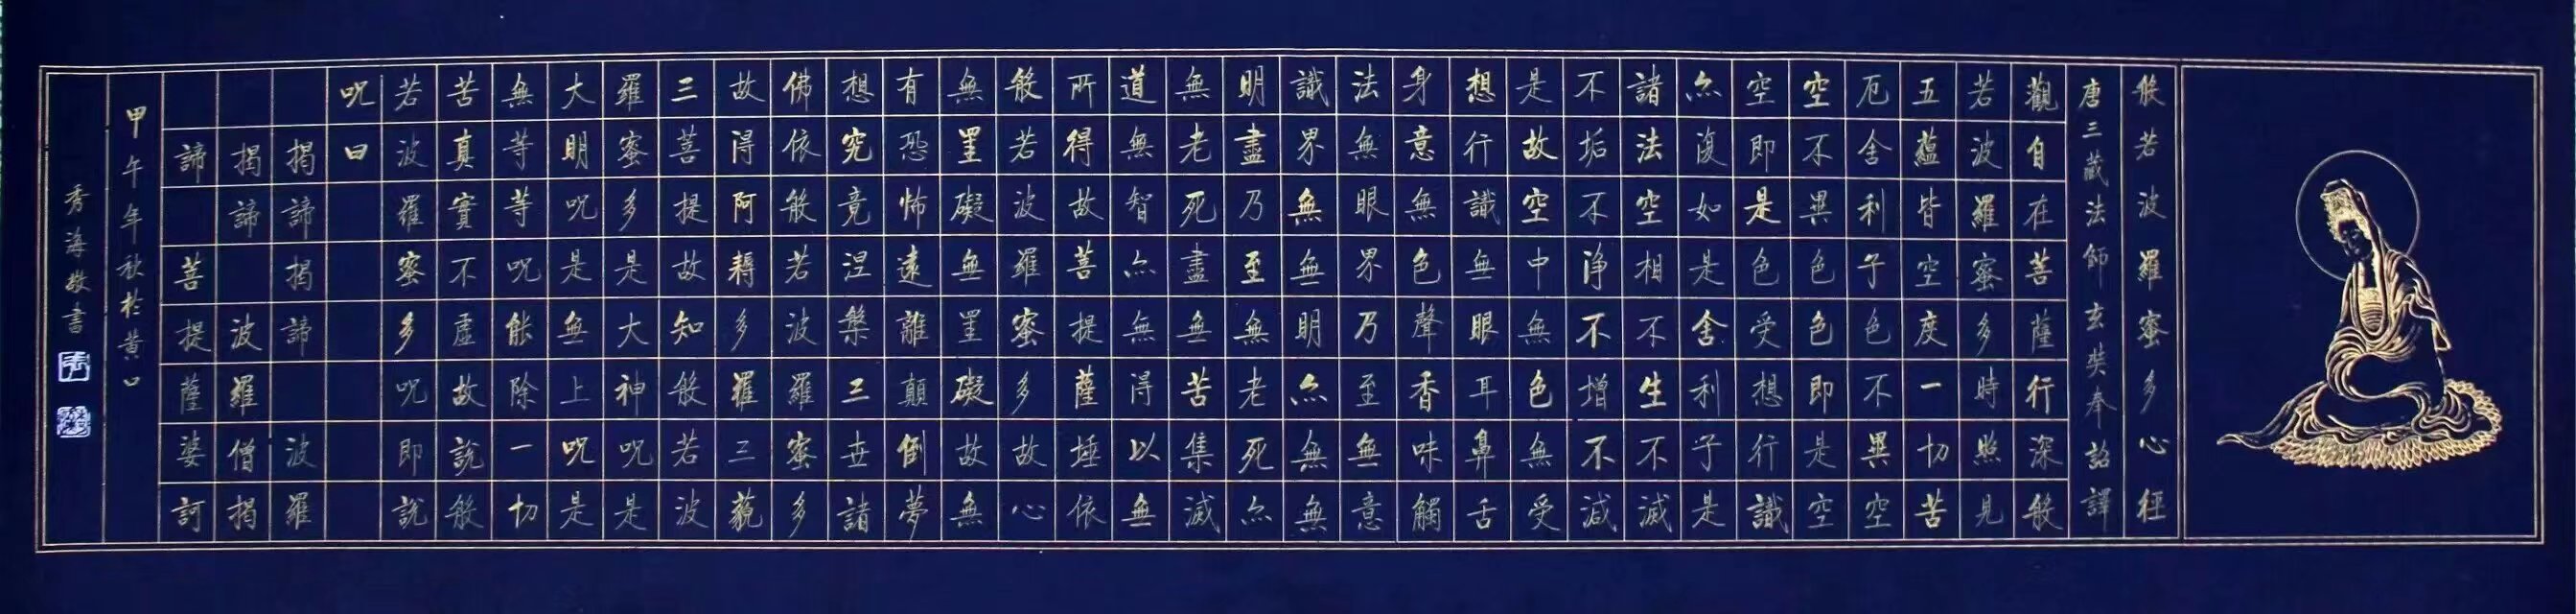 般若波羅蜜多心經
唐三藏法師玄奘奉詔譯
觀自在菩薩行深般
若波羅蜜多時照見
五蘊皆空度一切苦
厄舍利子色不異空
空不異色色即是空
空即是色受想行識
亦復如是舍利子是
諸法空相不生不滅
不垢不淨不增不減
是故空中無色無受
想行識無眼耳鼻舌
身意無色聲香味觸
法無眼界乃至無意
識界無無明亦無無
明盡乃至無老死亦
無老死盡無苦集滅
道無智亦無得以無
所得故菩提薩埵依
般若波羅蜜多故心
無罣礙無罣礙故無
有恐怖遠離顛倒夢
想究竟涅槃三世諸
佛依般若波羅蜜多
故得阿耨多羅三藐
三菩提故知般若波
羅蜜多是大神咒是
大明咒是無上咒是
無等等咒能除一切
苦真實不虛故說般
若波羅蜜多咒即說
咒曰
揭諦揭諦 波羅
揭諦 波羅僧揭
諦 菩提薩婆訶
甲午年秋於黃口
秀海敬書